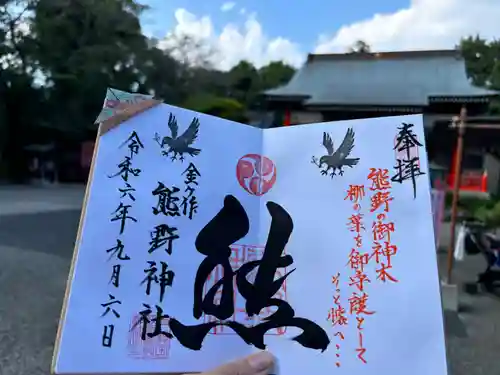 奉拝
熊野の御神木
梛の葉を御守護として
そっと懐へ・・・
熊
金ヶ作
熊野神社
令和六年九月六日